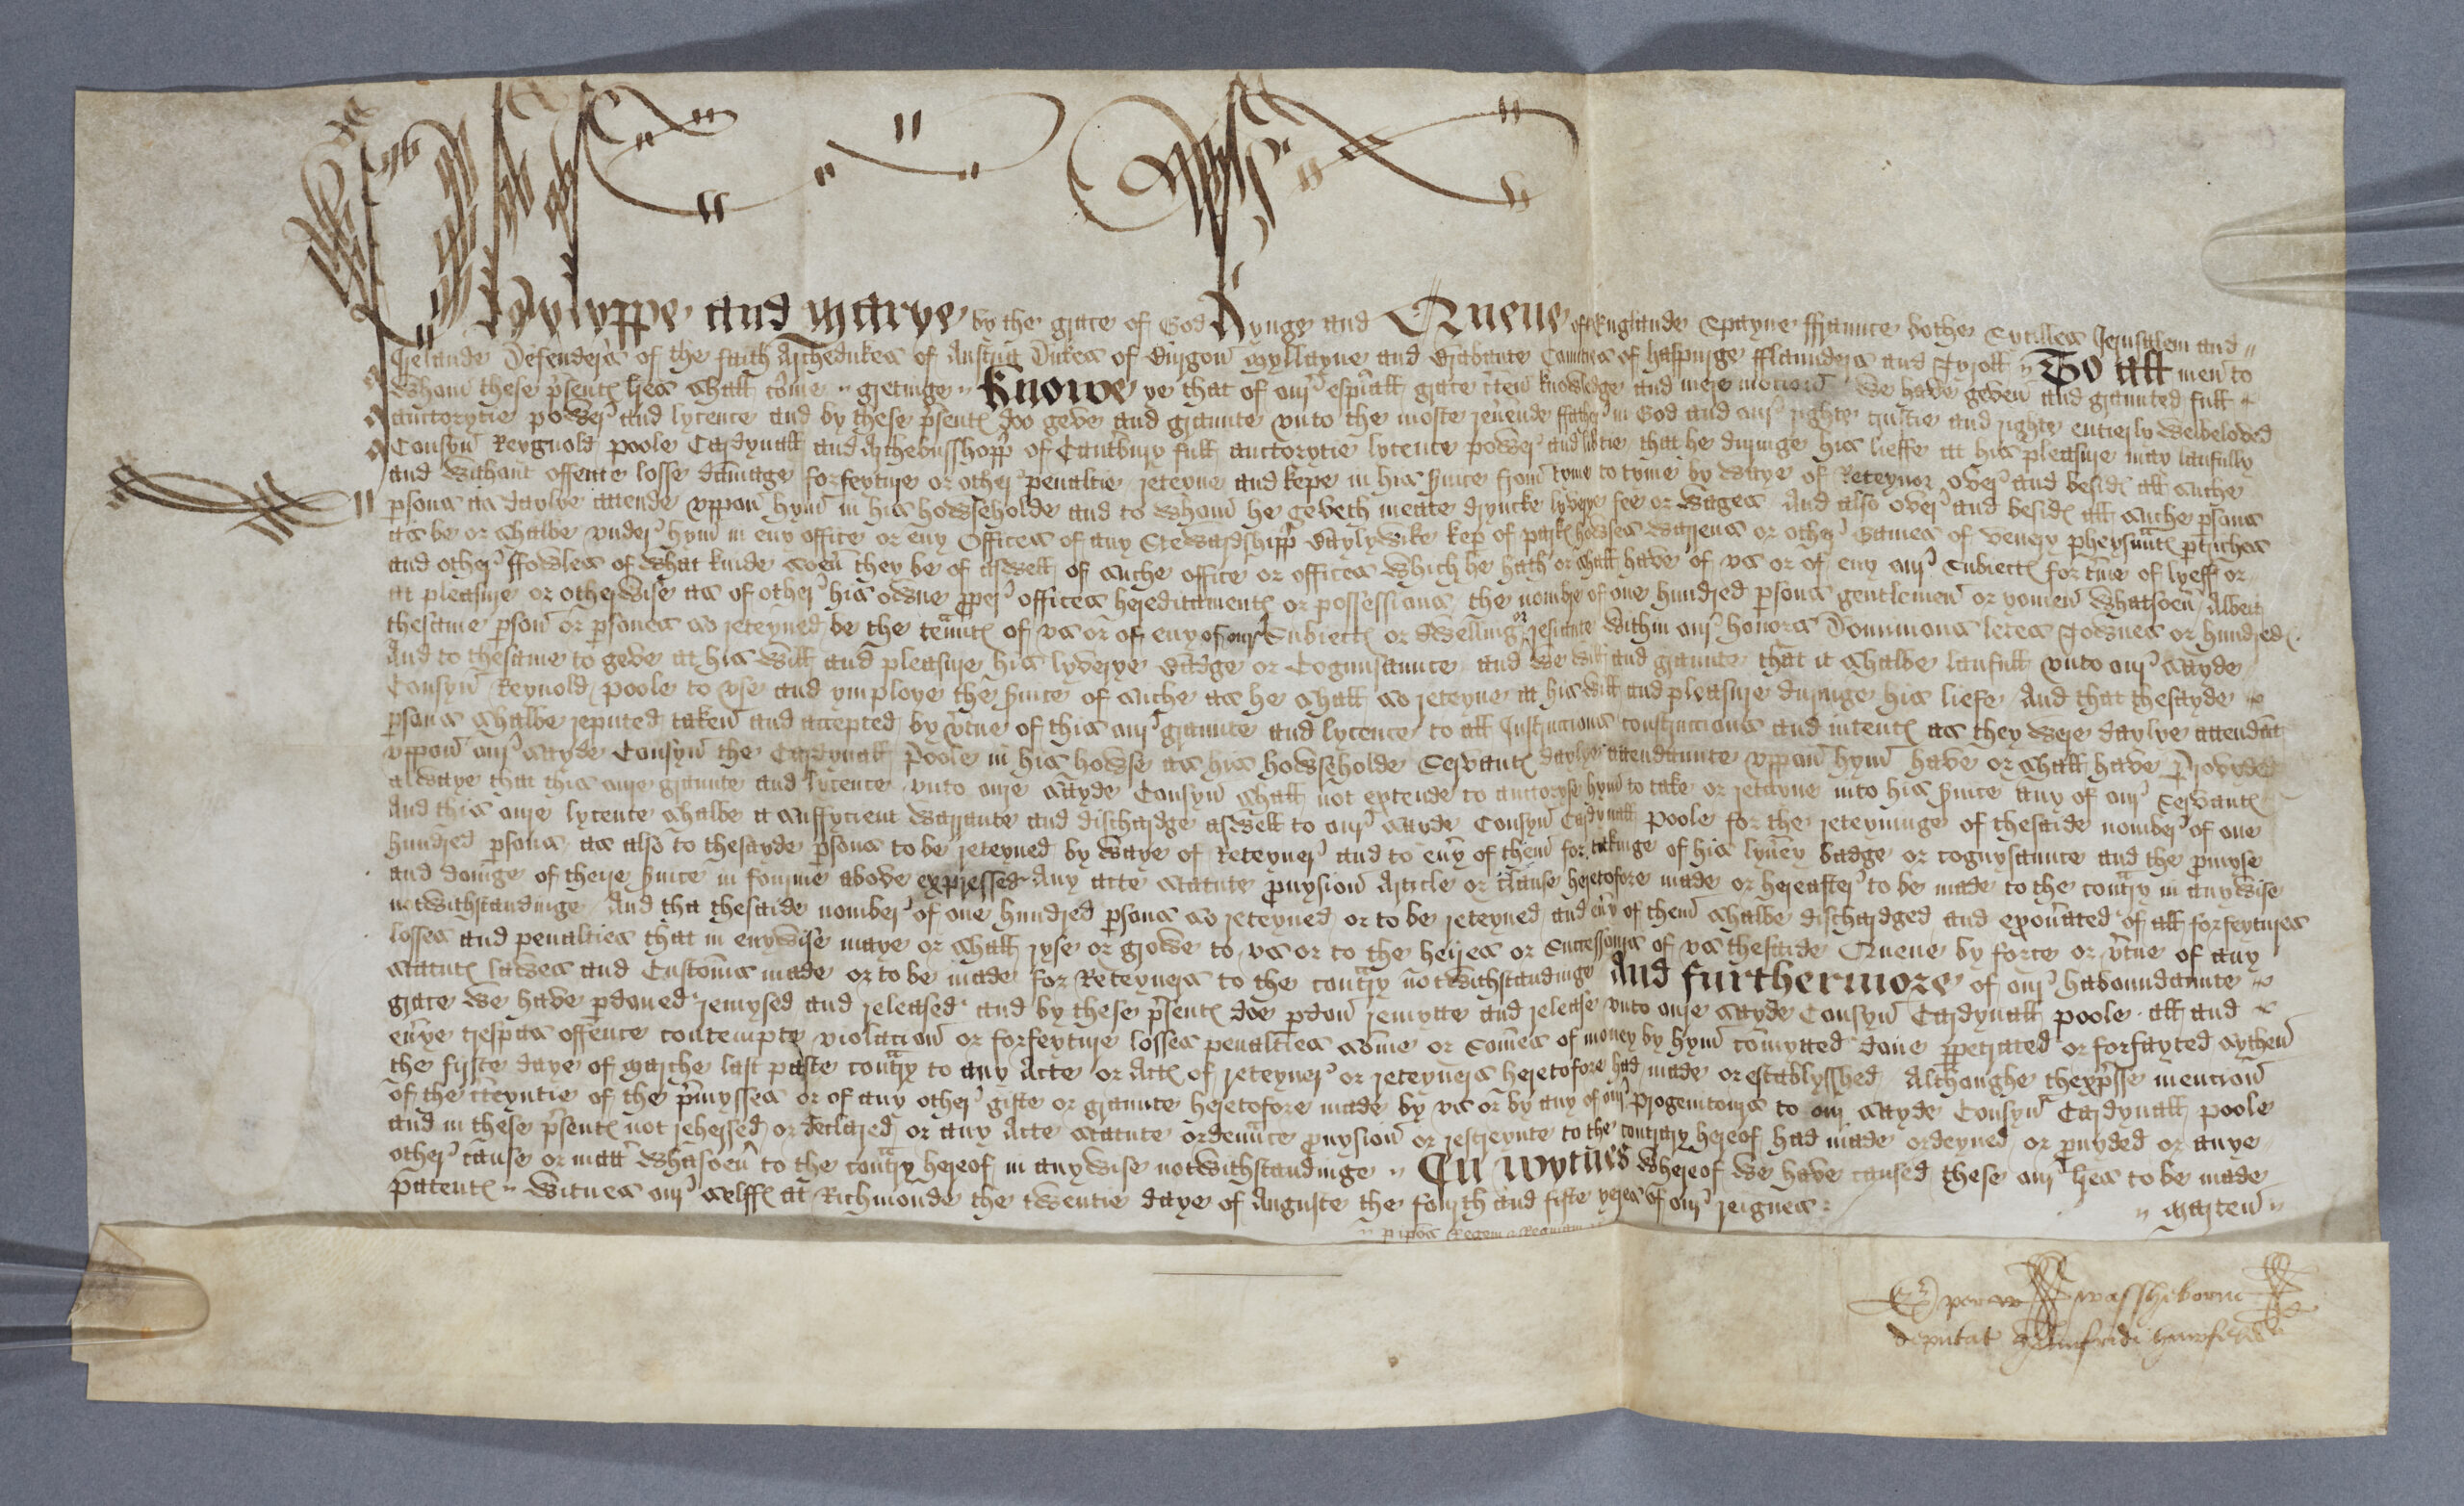 Phylyppe and Marye by the grace of God Kynge and Quene of Englande Spayne Ffraunce bothe Sycilles Jerusalem and
Irelande Defenders of the faith Archedukes of Austria Dukes of Burgon Myllayne and Brabante Counties of Haspurge Fflaunders and Tyroll To all men to
whom these pñsents lres shall come gretinge Knowe ye that of our espiall grace cten knowledge and mere mocion we have geven and graunted full
auctorytie power and lycence and by these pñsents doo geve and graunte vnto the moste reverende ffather in God and our righte trustie and righte entierly welbeloved
Cousyn Reygnold Poole Cardynall and Archebusshopp of Cantbury full auctorytie lycence power and libtie that he duringe his lieffe at his pleasure may laufully
and without offence losse damage forfeyture or other penaltie reteyne and kepe in his svice from tyme to tyme by waye of Reteynor over and besids all suche
psons as daylye attende vppon hym in his howseholde and to whom he geveth meate dryncke lyverye fee or wages And also over and besids all suche psons
as be or shalbe vnder hym in eny office or eny Offices of any Stewardshipp Baylywike kep of parks howses warrens or other Games of venery pheysaunts ptriches
and other ffowles of what kinde soeu they be of aswell of suche office or offices which he hath or shall have of vs or of eny our Subiects for tme of lyeff or
at pleasure or otherwise as of other his owne pper offices hereditaments or possessions the nombre of one hundred psons gentlemen or yomen whatsoeu Albeit
thesame pson or psones so reteyned be the tennts of vs or of eny of our Subiects or dwelling or resiante within our honors Domimons letes Townes or hundreds
And to thesame to geve at his will and pleasure his lyverye badge or Cognisaunce and we will and graunte that it shalbe laufull vnto our sayde
Cousyn Reynold Poole to vse and ymploye the svice of suche as he shall so reteyne at his will and pleasure duringe his liefe And that thesayde
psons shalbe reputed taken and accepted by vtue of this our graunte and lycence to all Instructions constructions and intents as they were daylye attendãt
vppon our sayde Cousyn the Cardynall Poole in his howse as his howseholde Servants daylye attendaunte vppon hym have or shall have Provyded
alwaye that this oure graunte and lycence vnto oure sayde Cousyn shall not extende to auctoryse hym to take or retayne into his svice any of our Servants
And this oure lycence shalbe a suffycient warrante and dischardge aswell to our sayde Cousyn Cardynall Poole for the reteyninge of thesaide nomber of one
hundred psons as also to thesayde psons to be reteyned by waye of Reteyner and to euy of them for takinge of his lyuey badge or cognysaunce and the pmyse
and doinge of theire svice in fourme above expressed Any acte statute pvysion Article or clause heretofore made or hereafter to be made to the contry in anywise
notwithstandinge And tha thesaide nomber of one hundred psons so reteyned or to be reteyned and euy of them shalbe dischardged and exonated of all forfeytures
losses and penalties that in enywise maye or shall ryse or growe to vs or to the heires or Successours of vs thesaide Quene by force or vtue of any
statuts lawes and Customs made or to be made for Reteyners to the contry notwithstandinge And furthermore of our haboundaunte
grace we have pdoned remysed and released and by these pñsents doe pdon remytte and release vnto oure sayde Cousyn Cardynall Poole all and
euye trespas offence contempte violacion or forfeyture losses penalties some or Somes of money by hym comytted done ppetrated or forfayted sythen
the firste daye of Marche last paste contry to any Acte or Acts of reteyner or reteyners heretofore had made or establysshed Althoughe thexpsse mencion
of the cteyntie of the pmysses or of any other gifte or graunte heretofore made by vs or by any of our progenitours to our sayde Cousyn Cardynall Poole
and in these pñsents not rehersed or declared or any Acte statute ordennce pvysion or restreynte to the contrary hereof had made ordeyned or pvyded or anye
other cause or matt whasoeu to the contry hereof in anywise notwithstandinge In wytnes whereof we have caused these our lres to be made
patents Witnes our selffs at Richmonde the twentie daye of Auguste the fourth and fifte yeres of our reignes
Marten
p ipos Regem & Reginam
Ex per Wassheborne
deputat